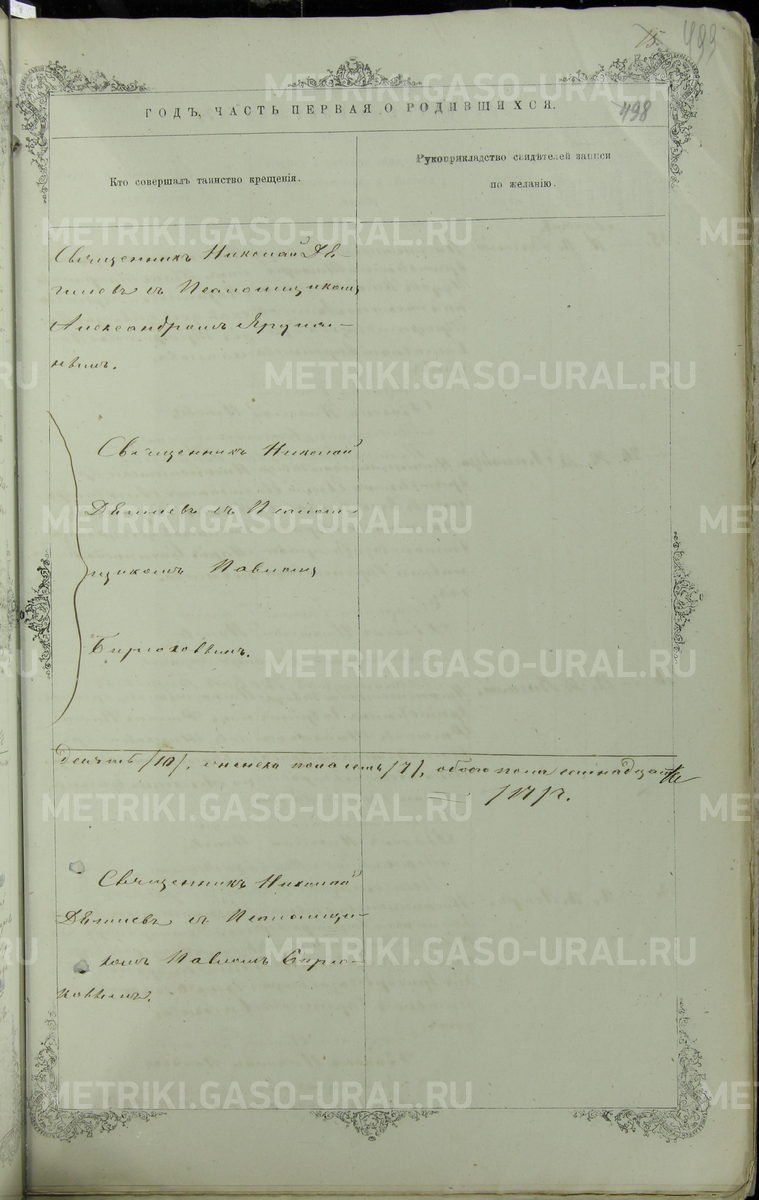 15.
493
498
ГОДЪ, ЧАСТЬ ПЕРВАЯ О РОДИВШИХСЯ.
Кто совершалъ таинство крещенія.
Рукоприкладство свидѣтелей записи
по желанію.
Священникъ Николай
съ Псаломщикомъ
Александромъ
Священникъ Николай
съ Псалом-
щикомъ Павломъ
Бирюковымъ.
Десять /10/, женска пола семь /7/, обоего пола семнадцать
/17/.
Священникъ Николай
съ Псаломщи-
комъ Павломъ Бирю-
ковымъ.
METRIKI.GASO-URAL.RU